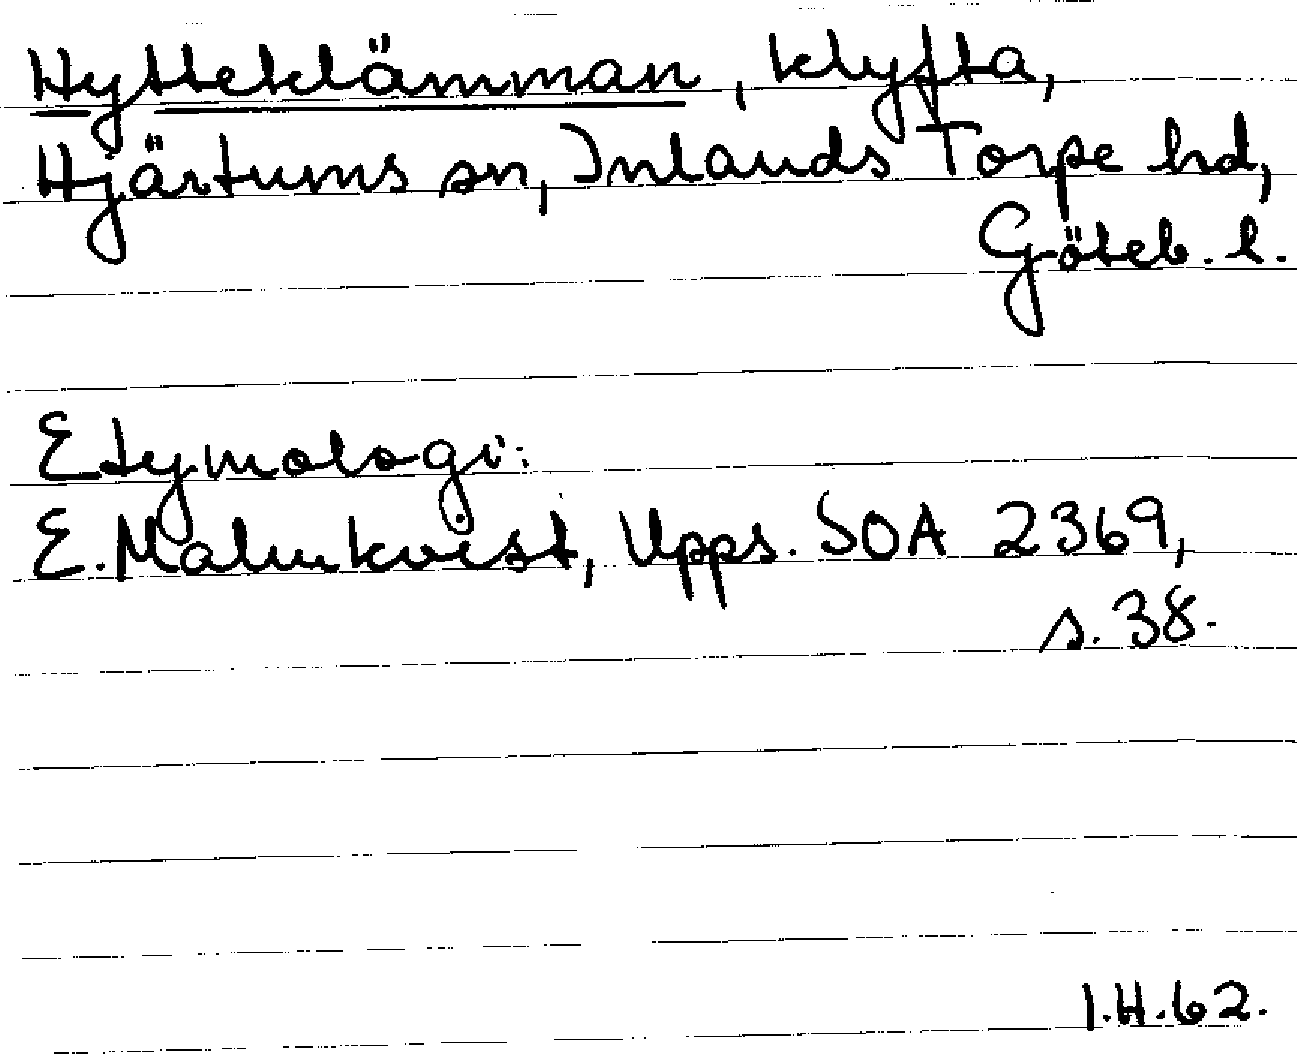 Hytteklämman, klyfta,
Hjärtums sn, Inlands Torpe hd,
Göteb. l.
Etymologi:
E. Malmkvist, Upps. SOA 2369,
s. 38.
I.H.62.